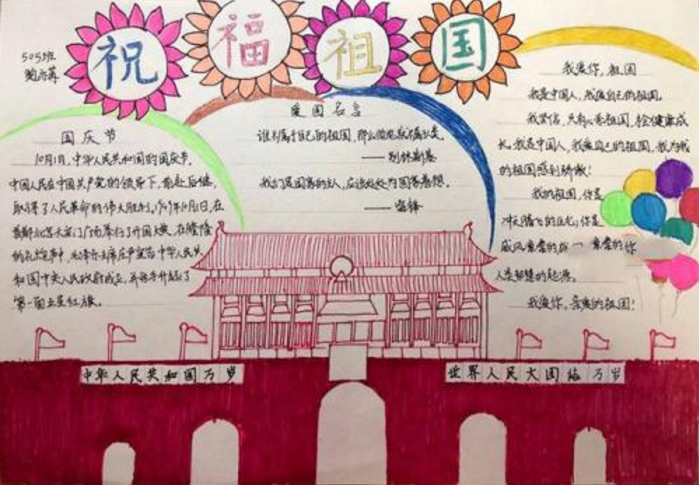 祝福祖国
505班
国庆节
10月1日,中华人民共和国的国庆节。
中国人民在中国共产党的领导下,前赴后继,
取得了人民革命的伟大胜利。1949年10月1日,在
首都北京天安门广场举行了开国大典,在隆隆
的礼炮声中,毛泽东主席庄严宣告中华人民共
和国中央人民政府成立,并亲手升起了
第一面五星红旗。
爱国名言
谁不属于自己的祖国,那么他也就不属于人类。
——别林斯基
我们是国家的主人,应该处处为国家着想。
——雷锋
我爱你,祖国
我是中国人,我爱自己的祖国。
我坚信,只有心系祖国,才会健康成
长,我是中国人,我爱自己的祖国,我为我
的祖国感到骄傲!
我的祖国,你是
冲天腾飞的巨龙;你是
威风 你
人类智慧的起源。
我爱你,亲爱的祖国!
中华人民共和国万岁
世界人民大团结万岁